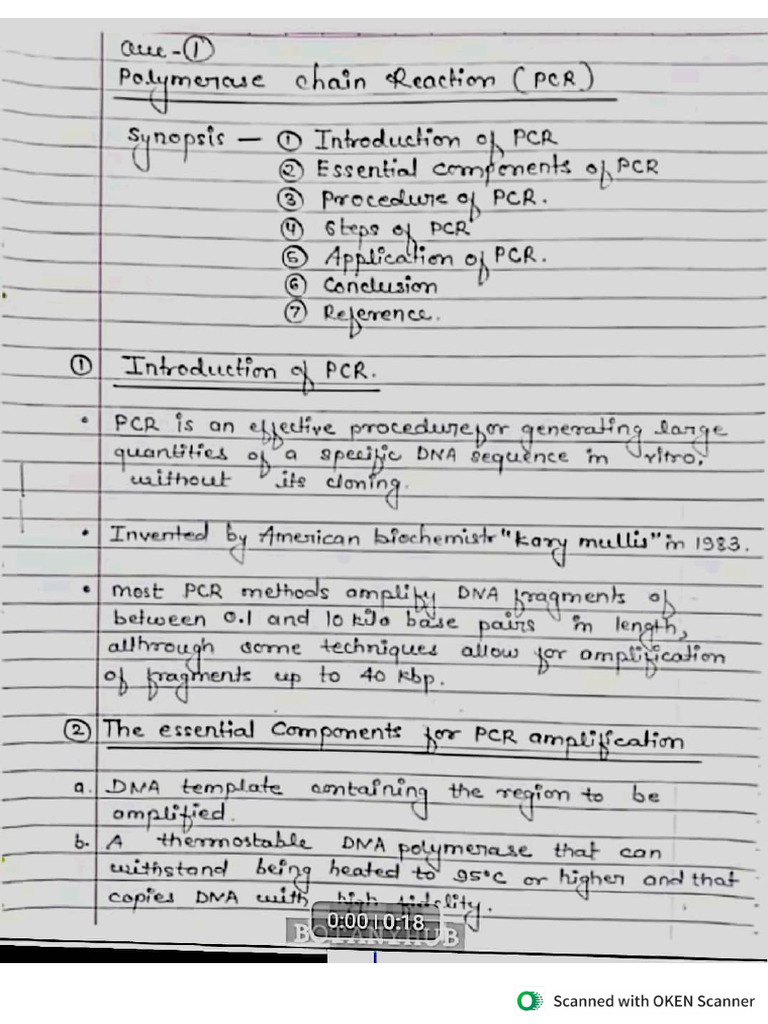 Que - ①
Polymerase chain Reaction (PCR)
Synopsis — ① Introduction of PCR
② Essential components of PCR
③ Procedure of PCR.
④ Steps of PCR
⑤ Application of PCR.
⑥ Conclusion
⑦ Reference.
① Introduction of PCR.
• PCR is an effective procedure for generating large
quantities of a specific DNA sequence in vitro,
without its cloning.
• Invented by American biochemistr "Kary mullis" in 1983.
• most PCR methods amplify DNA fragments of
between 0.1 and 10 kilo base pairs in length,
allthrough some techniques allow for amplification
of fragments up to 40 kbp.
② The essential Components for PCR amplification
a. DNA template containing the region to be
amplified.
b. A thermostable DNA polymerase that can
withstand being heated to 95°C or higher and that
copies DNA with high fidelity.
0:00 | 0:18
BOTANYHUB
Scanned with OKEN Scanner